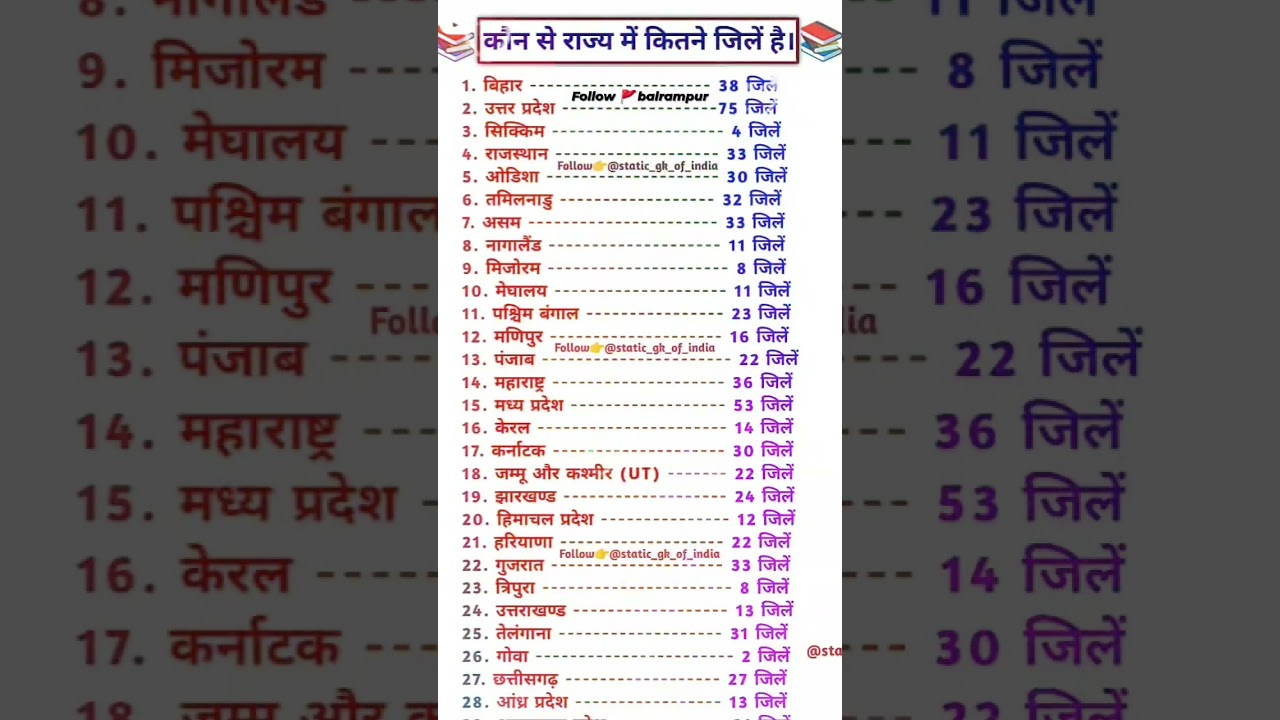 कौन से राज्य में कितने जिलें है।
1. बिहार ------------------------ 38 जिलें
Follow 🚩balrampur
2. उत्तर प्रदेश --------------------75 जिलें
3. सिक्किम ---------------------- 4 जिलें
4. राजस्थान ---------------------- 33 जिलें
Follow👉@static_gk_of_india
5. ओडिशा ---------------------- 30 जिलें
6. तमिलनाडु -------------------- 32 जिलें
7. असम ------------------------ 33 जिलें
8. नागालैंड ---------------------- 11 जिलें
9. मिजोरम ----------------------- 8 जिलें
10. मेघालय ---------------------- 11 जिलें
11. पश्चिम बंगाल ----------------- 23 जिलें
12. मणिपुर ---------------------- 16 जिलें
Follow👉@static_gk_of_india
13. पंजाब ------------------------ 22 जिलें
14. महाराष्ट्र ---------------------- 36 जिलें
15. मध्य प्रदेश -------------------- 53 जिलें
16. केरल ------------------------ 14 जिलें
17. कर्नाटक ---------------------- 30 जिलें
18. जम्मू और कश्मीर (UT) ------- 22 जिलें
19. झारखण्ड -------------------- 24 जिलें
20. हिमाचल प्रदेश ---------------- 12 जिलें
21. हरियाणा --------------------- 22 जिलें
Follow👉@static_gk_of_india
22. गुजरात ---------------------- 33 जिलें
23. त्रिपुरा ------------------------ 8 जिलें
24. उत्तराखण्ड ------------------- 13 जिलें
25. तेलंगाना --------------------- 31 जिलें
26. गोवा ------------------------- 2 जिलें
@sta
27. छत्तीसगढ़ -------------------- 27 जिलें
28. आंध्र प्रदेश ------------------- 13 जिलें